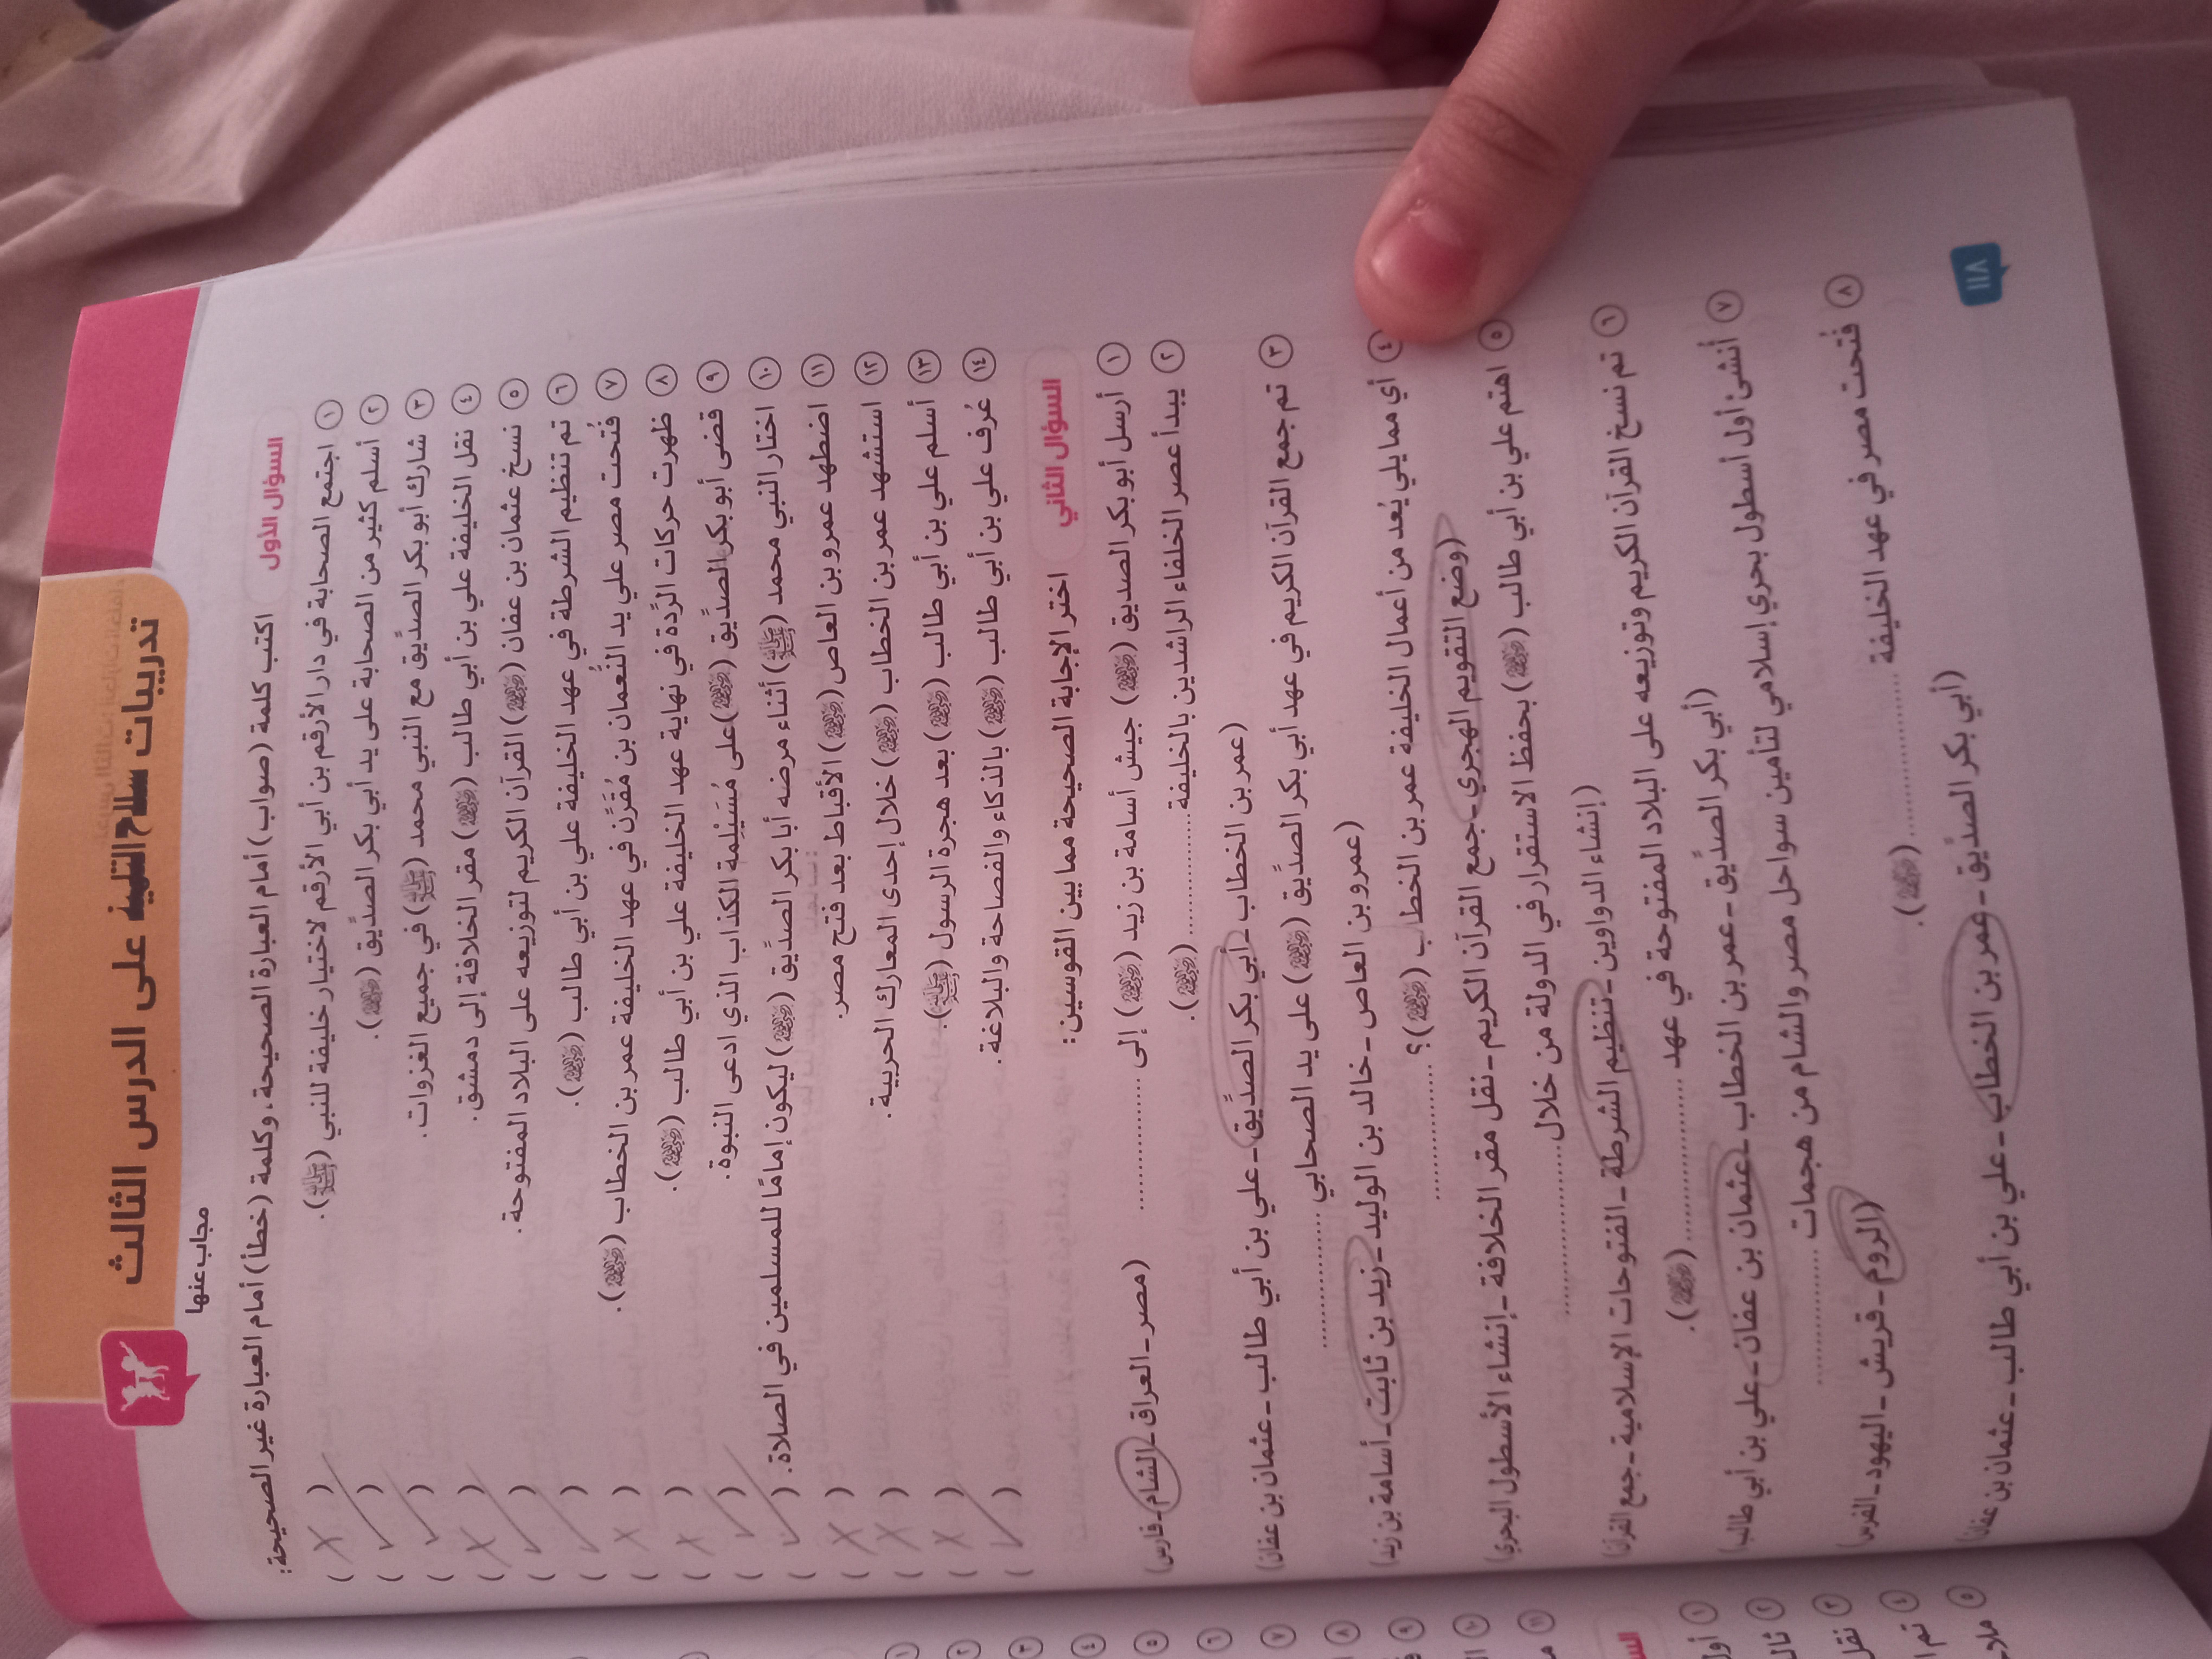 تدريبات سلاح التلميذ على الدرس الثالث
مجاب عنها
السؤال الأول
اكتب كلمة (صواب) أمام العبارة الصحيحة، وكلمة (خطأ) أمام العبارة غير الصحيحة:
١ اجتمع الصحابة في دار الأرقم بن أبي الأرقم لاختيار خليفة للنبي (ﷺ). ( X )
٢ أسلم كثير من الصحابة على يد أبي بكر الصدِّيق (رضي الله عنه). ( ✓ )
٣ شارك أبو بكر الصدِّيق مع النبي محمد (ﷺ) في جميع الغزوات. ( ✓ )
٤ نقل الخليفة علي بن أبي طالب (رضي الله عنه) مقر الخلافة إلى دمشق. ( X )
٥ نسخ عثمان بن عفان (رضي الله عنه) القرآن الكريم لتوزيعه على البلاد المفتوحة. ( ✓ )
٦ تم تنظيم الشرطة في عهد الخليفة علي بن أبي طالب (رضي الله عنه). ( ✓ )
٧ فُتحت مصر علي يد النُّعمان بن مُقَرَّن في عهد الخليفة عمر بن الخطاب (رضي الله عنه). ( X )
٨ ظهرت حركات الرِّدة في نهاية عهد الخليفة علي بن أبي طالب (رضي الله عنه). ( X )
٩ قضى أبو بكر الصدِّيق (رضي الله عنه) على مُسَيْلِمة الكذاب الذي ادعى النبوة. ( ✓ )
١٠ اختار النبي محمد (ﷺ) أثناء مرضه أبا بكر الصدِّيق (رضي الله عنه) ليكون إمامًا للمسلمين في الصلاة. ( ✓ )
١١ اضطهد عمرو بن العاص (رضي الله عنه) الأقباط بعد فتح مصر. ( X )
١٢ استشهد عمر بن الخطاب (رضي الله عنه) خلال إحدى المعارك الحربية. ( X )
١٣ أسلم علي بن أبي طالب (رضي الله عنه) بعد هجرة الرسول (ﷺ). ( X )
١٤ عُرف علي بن أبي طالب (رضي الله عنه) بالذكاء والفصاحة والبلاغة. ( ✓ )
السؤال الثاني
اختر الإجابة الصحيحة مما بين القوسين:
١ أرسل أبو بكر الصديق (رضي الله عنه) جيش أسامة بن زيد (رضي الله عنه) إلى ............... (مصر - العراق - الشام - فارس)
٢ يبدأ عصر الخلفاء الراشدين بالخليفة ............... (رضي الله عنه).
(عمر بن الخطاب - أبي بكر الصدِّيق - علي بن أبي طالب - عثمان بن عفان)
٣ تم جمع القرآن الكريم في عهد أبي بكر الصدِّيق (رضي الله عنه) على يد الصحابي ...............
(عمرو بن العاص - خالد بن الوليد - زيد بن ثابت - أسامة بن زيد)
٤ أي مما يلي يُعد من أعمال الخليفة عمر بن الخطاب (رضي الله عنه)؟ ...............
(وضع التقويم الهجري - جمع القرآن الكريم - نقل مقر الخلافة - إنشاء الأسطول البحري)
٥ اهتم علي بن أبي طالب (رضي الله عنه) بحفظ الاستقرار في الدولة من خلال ...............
(إنشاء الدواوين - تنظيم الشرطة - الفتوحات الإسلامية - جمع القرآن)
٦ تم نسخ القرآن الكريم وتوزيعه على البلاد المفتوحة في عهد ............... (رضي الله عنه).
(أبي بكر الصدِّيق - عمر بن الخطاب - عثمان بن عفان - علي بن أبي طالب)
٧ أنشئ أول أسطول بحري إسلامي لتأمين سواحل مصر والشام من هجمات ...............
(الروم - قريش - اليهود - الفرس)
٨ فُتحت مصر في عهد الخليفة ............... (رضي الله عنه).
(أبي بكر الصدِّيق - عمر بن الخطاب - علي بن أبي طالب - عثمان بن عفان)
١١٨